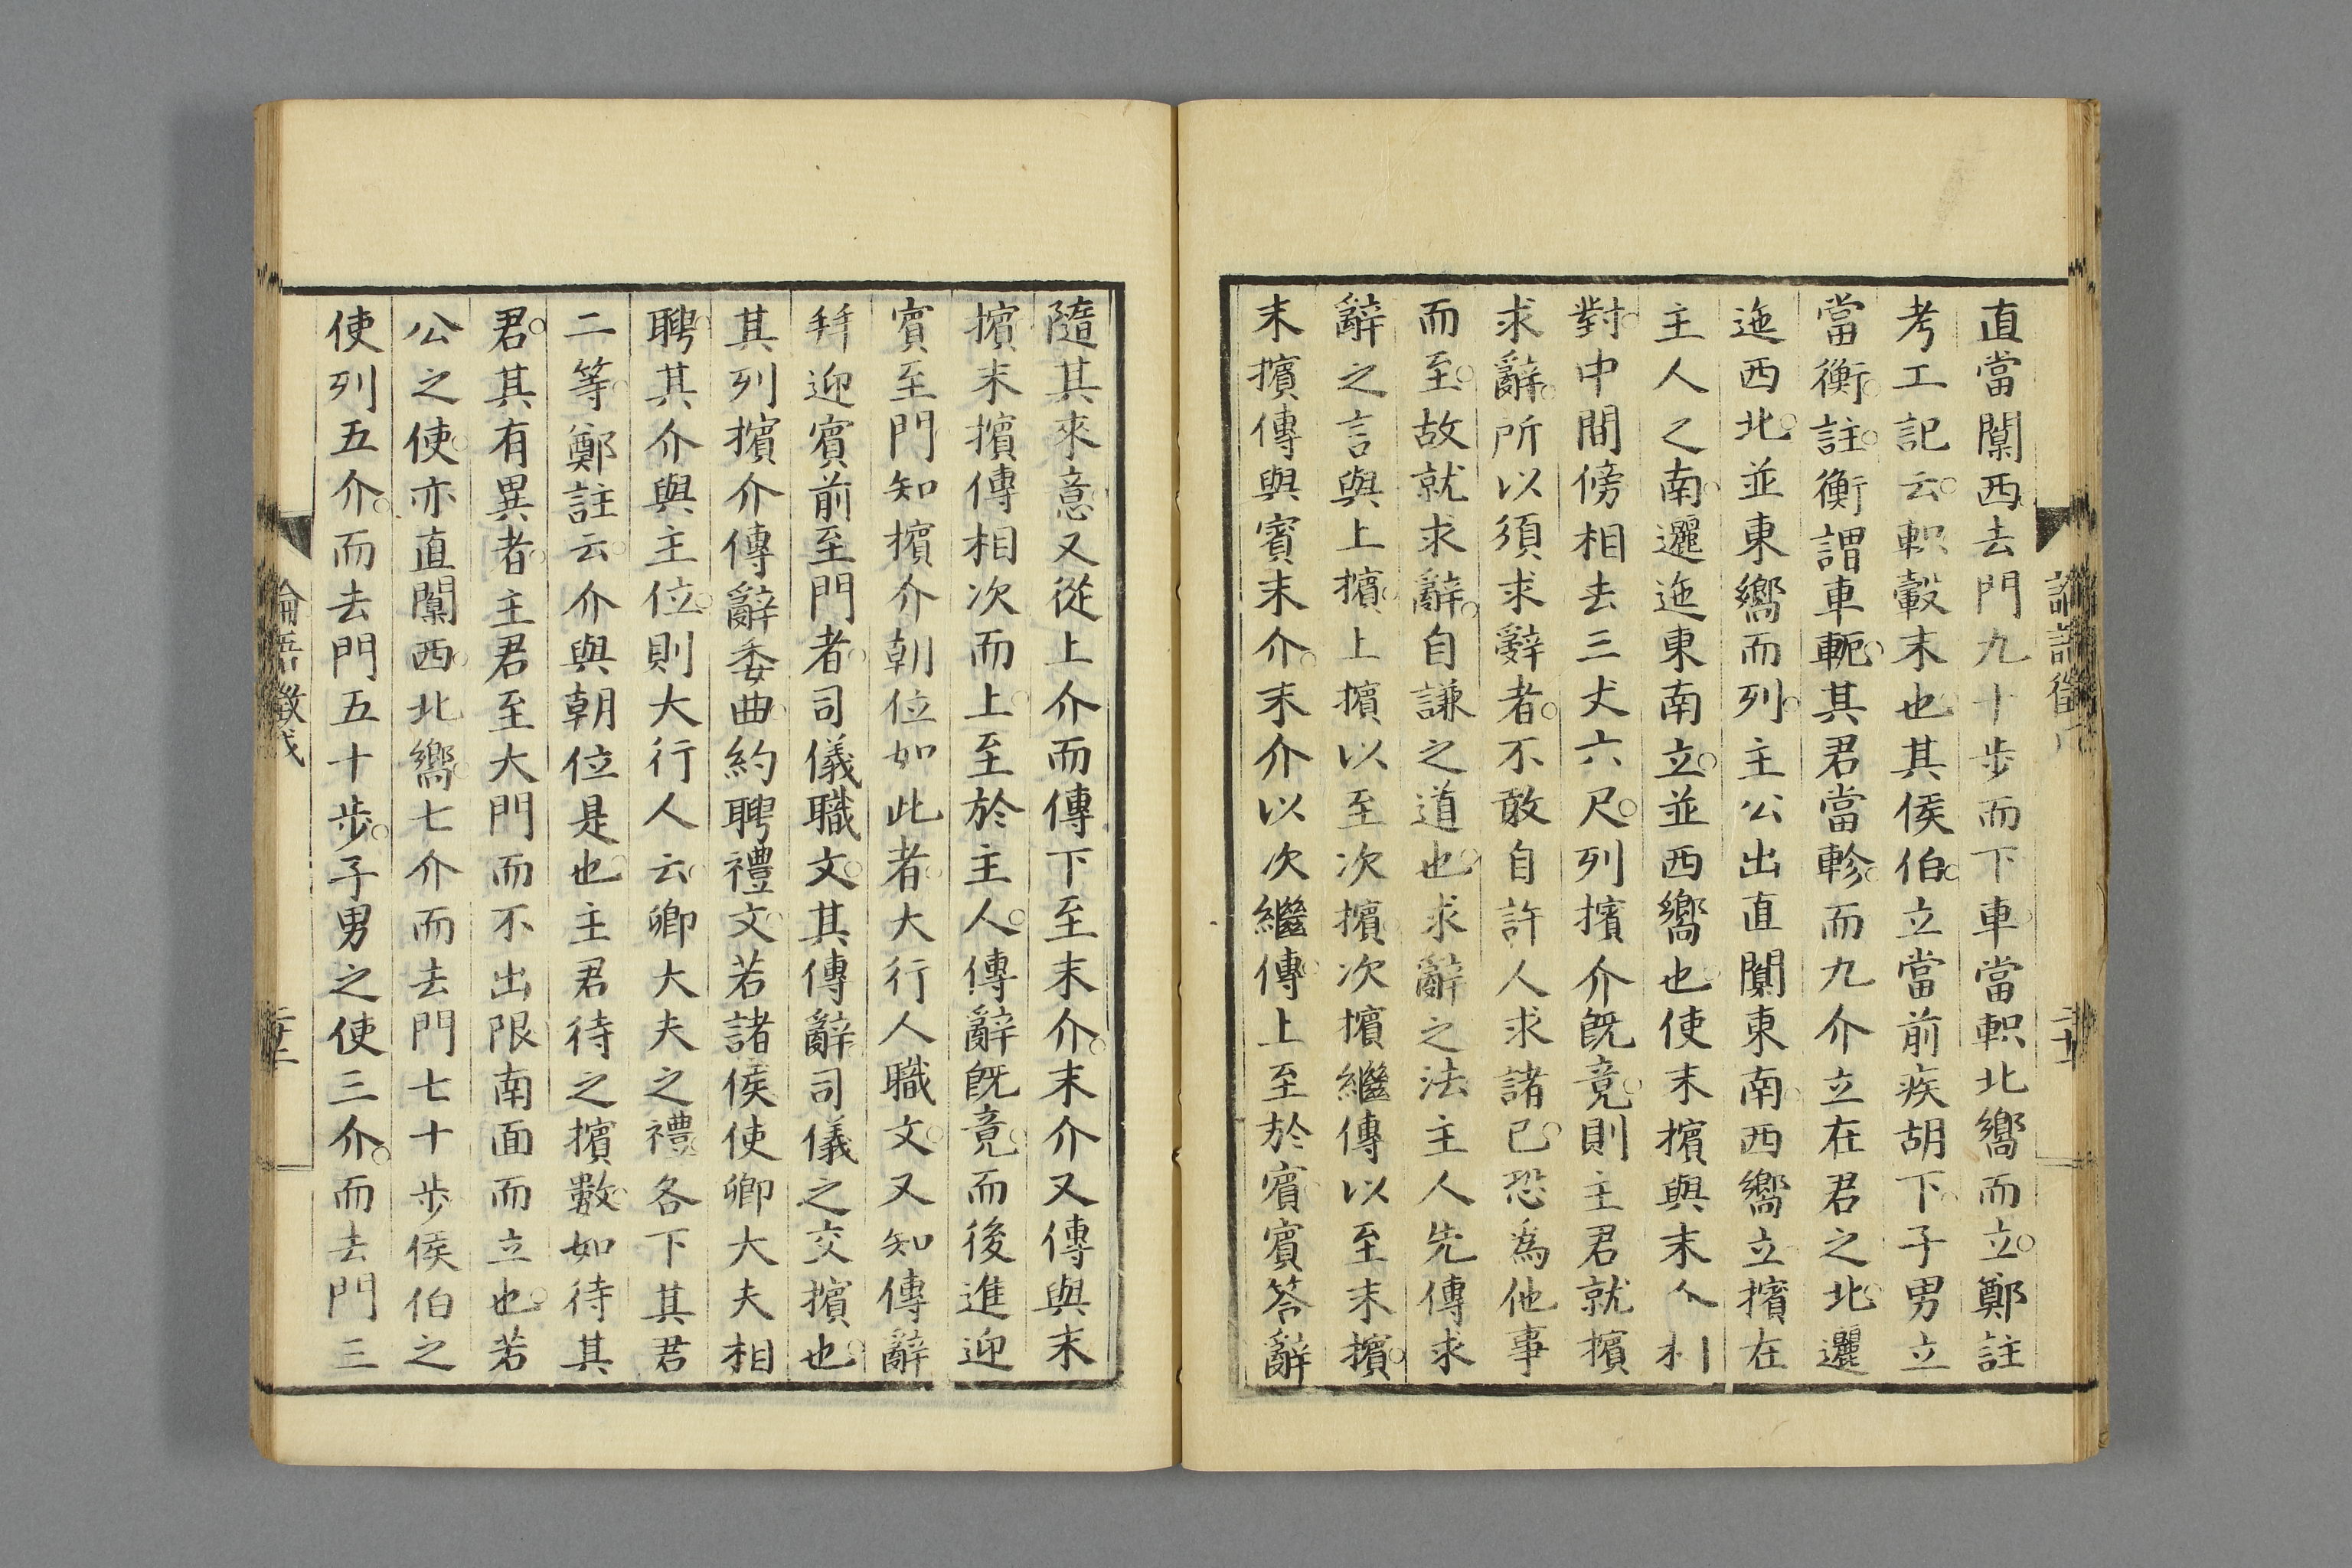 直當闑西去門九十步而下車當軹北嚮而立鄭註
考工記云軹轂末也其侯伯立當前疾胡下子男立
當衡註衡謂車軛其君當軫而九介立在君之北邐
迤西北並東嚮而列主公出直闑東南西嚮立擯在
主人之南邐迤東南立並西嚮也使末擯與末人
對中間傍相去三丈六尺列擯介既竟則主君就擯
求辭所以須求辭者不敢自許人求諸已恐為他事
而至故就求辭自謙之道也求辭之法主人先傳求
辭之言與上擯上擯以至次擯次擯繼傳以至末擯
末擯傳與賓末介末介以次繼傳上至於賓賓答辭
隨其來意又從上介而傳下至末介末介又傳與末
擯末擯傳相次而上至於主人傳辭既竟而後進迎
賓至門知擯介朝位如此者大行人職文又知傳辭
拜迎賓前至門者司儀職文其傳辭司儀之交擯也
其列擯介傳辭委曲約聘禮文若諸侯使卿大夫相
聘其介與主位則大行人云卿大夫之禮各下其君
二等鄭註云介與朝位是也主君待之擯數如待其
君其有異者主君至大門而不出限南面而立也若
公之使亦直闑西北嚮七介而去門七十步侯伯之
使列五介而去門五十步子男之使三介而去門三
論語徵戊